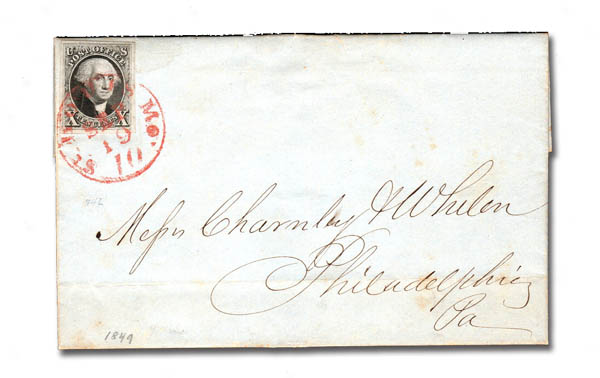 POST OFFICE
ST. LOUIS Mo.
19
10
Messrs Charnley & Whelen
Philadelphia
Pa
1849